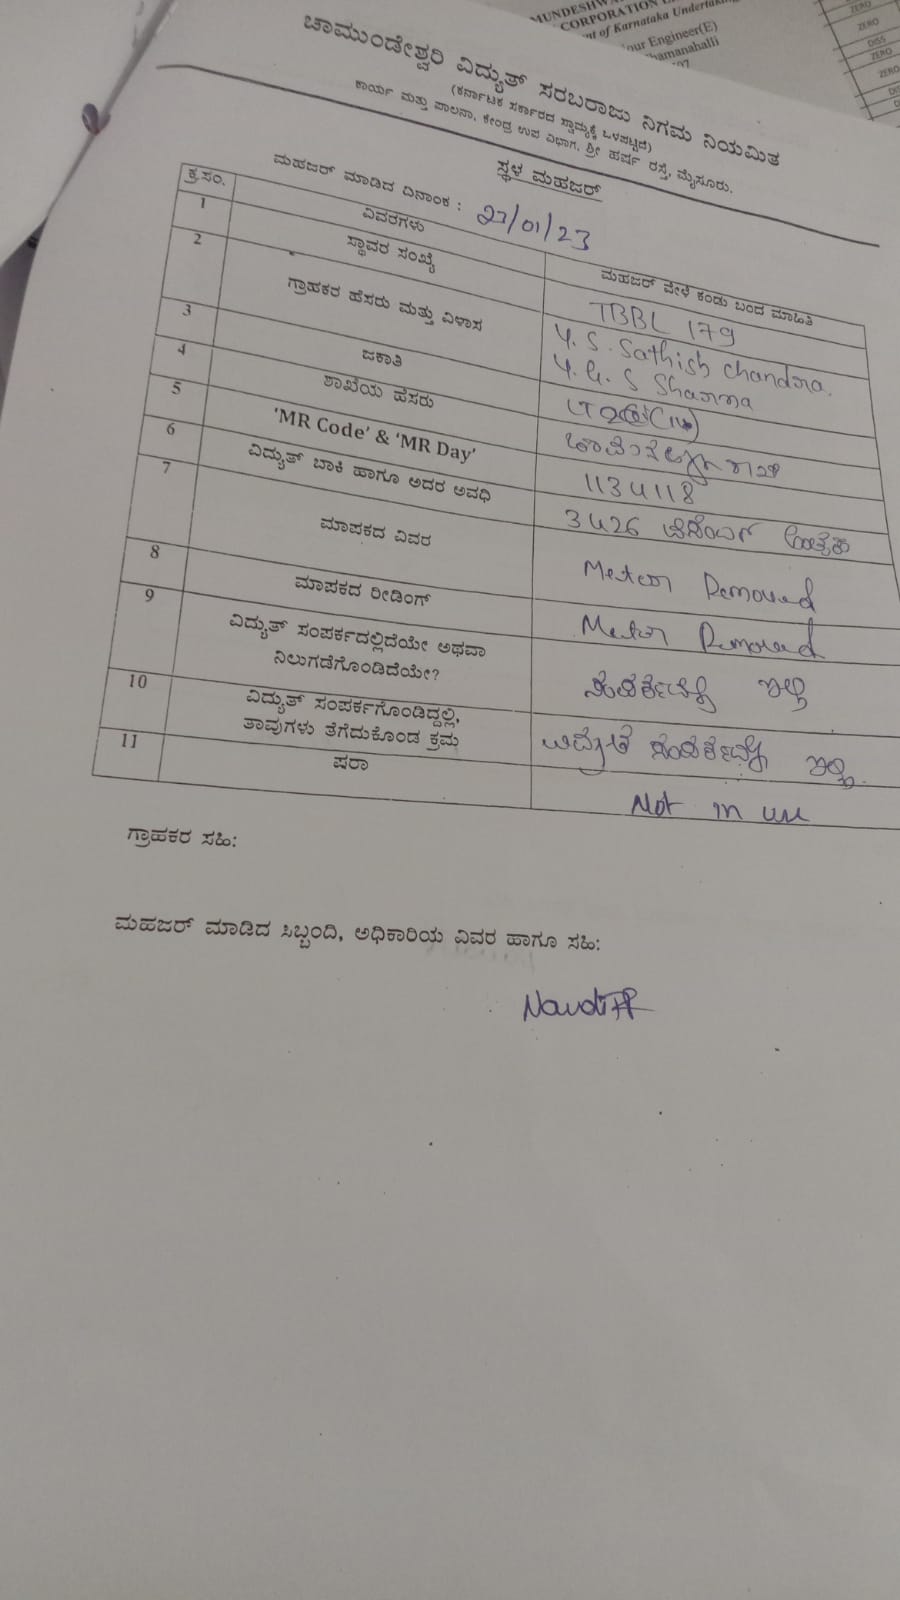 MUNDESHWA
CORPORATION L
nt of Karnataka Undertakin
our Engineer(E)
hamanahalli
ZERO
ZERO
DISS
ZERO
ZERO
ಚಾಮುಂಡೇಶ್ವರಿ ವಿದ್ಯುತ್ ಸರಬರಾಜು ನಿಗಮ ನಿಯಮಿತ
(ಕರ್ನಾಟಕ ಸರ್ಕಾರದ ಸ್ವಾಮ್ಯಕ್ಕೆ ಒಳಪಟ್ಟಿದೆ)
ಕಾರ್ಯ ಮತ್ತು ಪಾಲನಾ, ಕೇಂದ್ರ ಉಪ ವಿಭಾಗ, ಶ್ರೀ ಹರ್ಷ ರಸ್ತೆ, ಮೈಸೂರು.
ಸ್ಥಳ ಮಹಜರ್
ಮಹಜರ್ ಮಾಡಿದ ದಿನಾಂಕ : 23/01/23
ಕ್ರ.ಸಂ. ವಿವರಗಳು ಮಹಜರ್ ವೇಳೆ ಕಂಡು ಬಂದ ಮಾಹಿತಿ
1 ಸ್ಥಾವರ ಸಂಖ್ಯೆ TBBL 179
2 ಗ್ರಾಹಕರ ಹೆಸರು ಮತ್ತು ವಿಳಾಸ Y. S. Sathish Chandra.
Y. G. S Sharma
3 ಜಕಾತಿ
4 ಶಾಖೆಯ ಹೆಸರು
5 'MR Code' & 'MR Day' 1134118
6 ವಿದ್ಯುತ್ ಬಾಕಿ ಹಾಗೂ ಅದರ ಅವಧಿ 3426
7 ಮಾಪಕದ ವಿವರ Meter Removed
8 ಮಾಪಕದ ರೀಡಿಂಗ್ Meter Removed
9 ವಿದ್ಯುತ್ ಸಂಪರ್ಕದಲ್ಲಿದೆಯೇ ಅಥವಾ
ನಿಲುಗಡೆಗೊಂಡಿದೆಯೇ? ಸಂಪರ್ಕದಲ್ಲಿ ಇಲ್ಲ
10 ವಿದ್ಯುತ್ ಸಂಪರ್ಕಗೊಂಡಿದ್ದಲ್ಲಿ,
ತಾವುಗಳು ತೆಗೆದುಕೊಂಡ ಕ್ರಮ ವಿದ್ಯುತ್ ಸಂಪರ್ಕದಲ್ಲಿ ಇಲ್ಲ.
11 ಷರಾ Not in use
ಗ್ರಾಹಕರ ಸಹಿ:
ಮಹಜರ್ ಮಾಡಿದ ಸಿಬ್ಬಂದಿ, ಅಧಿಕಾರಿಯ ವಿವರ ಹಾಗೂ ಸಹಿ: